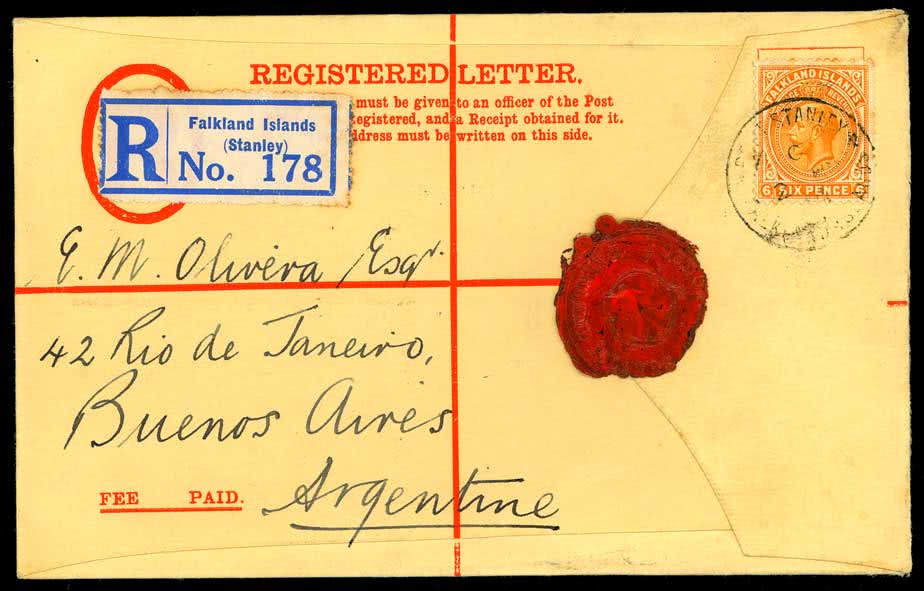 REGISTERED LETTER.
must be given to an officer of the Post
egistered, and a Receipt obtained for it.
ddress must be written on this side.
R
Falkland Islands
(Stanley)
No. 178
FALKLAND ISLANDS
6 SIX PENCE
STANLEY
E. M. Olivera Esqr.
42 Rio de Janeiro,
Buenos Aires
Argentine
FEE PAID.